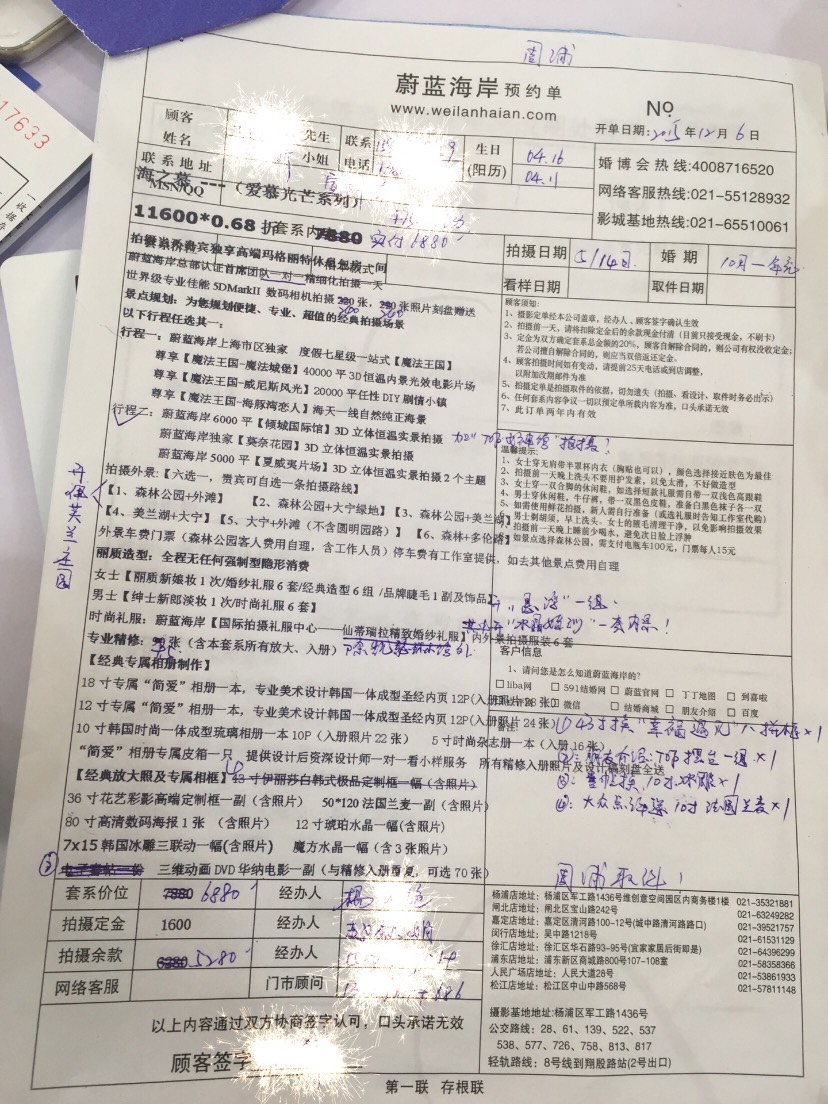 17633
周浦
蔚蓝海岸 预约单
www.weilanhaian.com
NO
开单日期: 2015年12月6日
顾客姓名
先生
小姐
联系电话
生日(阳历)
04.16
04.11
婚博会热线:4008716520
网络客服热线:021-55128932
影城基地热线:021-65510061
联系地址
MSN/QQ
海之慕---（爱慕光芒系列）
11600*0.68 折套系内 7880 实付6880
拍摄日期 5/14日
婚期 10月一
看样日期
取件日期
蔚蓝海岸总部认证首席团队一对一精细化拍摄一天
世界级专业佳能 5DMarkII 数码相机拍摄 张, 张照片刻盘赠送
景点规划：为您规划便捷、专业、超值的经典拍摄场景
以下行程任选其一：
行程一：蔚蓝海岸上海市区独家 度假七星级一站式【魔法王国】
尊享【魔法王国-魔法城堡】40000 平 3D 恒温内景光效电影片场
尊享【魔法王国-威尼斯风光】20000 平任性 DIY 剧情小镇
尊享【魔法王国-海豚湾恋人】海天一线自然纯正海景
行程二：蔚蓝海岸 6000 平【倾城国际馆】3D 立体恒温实景拍摄
蔚蓝海岸独家【葵奈花园】3D 立体恒温实景拍摄
蔚蓝海岸 5000 平【夏威夷片场】3D 立体恒温实景拍摄 2 个主题
拍摄外景:【六选一，贵宾可自选一条拍摄路线】
【1、森林公园+外滩】 【2、森林公园+大宁绿地】【3、森林公园+美兰湖】
【4、美兰湖+大宁】【5、大宁+外滩（不含圆明园路）】 【6、森林+多伦路】
外景车费门票（森林公园客人费用自理，含工作人员）停车费有工作室提供，如去其他景点费用自理
丽质造型：全程无任何强制型隐形消费
女士【丽质新娘妆 1 次/婚纱礼服 6 套/经典造型 6 组 /品牌睫毛 1 副及饰品】
男士【绅士新郎淡妆 1 次/时尚礼服 6 套】
时尚礼服：蔚蓝海岸【国际拍摄礼服中心——仙蒂瑞拉精致婚纱礼服】内外景拍摄服装 6 套
专业精修： 张（含本套系所有放大、入册）
顾客须知:
1、摄影定单经本公司盖章，经办人、顾客签字确认生效
2、拍摄前一天，请将扣除定金后的余款现金付清（目前只接受现金，不刷卡）
3、定金为双方确定套系总金额的20%，顾客自解除合同的，则公司有权没收定金；
若公司擅自解除合同的，则应当双倍返还定金。
4、顾客拍摄时间如有变动，请提前25天电话或到店调整，
以附加改期邮件为准
5、拍摄定单是拍摄取件的依据，切勿遗失（拍摄、看设计、取件时务必出示）
6、任何套系内容争议一切以预定单所载内容为准，口头承诺无效
7、此订单两年内有效
温馨提示:
1、女士穿无肩带半罩杯内衣（胸贴也可以），颜色选择接近肤色为最佳
2、拍摄前一天晚上洗头不要用护发素，以免太滑，不好做造型
3、女士穿一双合脚的休闲鞋，如选择短款礼服需自带一双浅色高跟鞋
4、男士穿休闲鞋，牛仔裤，带一双黑色皮鞋，准备白黑色袜子各一双
5、如需使用鲜花拍摄，新人需自行准备（或选礼服时告知工作室代购）
6、男士剃胡须，早上洗头。女士的腋毛清理干净，以免影响拍摄效果
7、拍摄前一天晚上睡前少喝水，避免次日脸上浮肿
8、如景点选择森林公园，需支付电瓶车100元，门票每人15元
客户信息
1、请问您是怎么知道蔚蓝海岸的？
□ liba网 □ 591结婚网 □ 蔚蓝官网 □ 丁丁地图 □ 到喜啦
□ 微信 □ 结婚商城 □ 朋友介绍 □ 百度
备注:
【经典专属相册制作】
18 寸专属“简爱”相册一本，专业美术设计韩国一体成型圣经内页 12P(入册照片 28 张)
12 寸专属“简爱”相册一本，专业美术设计韩国一体成型圣经内页 12P(入册照片 24 张)
10 寸韩国时尚一体成型琉璃相册一本 10P（入册照片 22 张） 5 寸时尚杂志册一本（入册 16 张）
“简爱”相册专属皮箱一只 提供设计后资深设计师一对一看小样服务 所有精修入册照片及设计稿刻盘全送
【经典放大照及专属相框】43 寸伊丽莎白韩式极品定制框一幅（含照片）
36 寸花艺彩影高端定制框一副（含照片） 50*120 法国兰麦一副（含照片）
80 寸高清数码海报 1 张 （含照片） 12 寸琥珀水晶一幅(含照片)
7x15 韩国冰雕三联动一幅(含照片) 魔方水晶一幅（含 3 张照片）
三维动画 DVD 华纳电影一副（与精修入册重复，可选 70 张）
①43寸换“幸福遇见”八拼框×1
④：大众点评 10寸法国兰麦×1
周浦取件！
套系价位 7880 6880
经办人
拍摄定金 1600
经办人
拍摄余款 6280 5280
经办人
网络客服
门市顾问
以上内容通过双方协商签字认可，口头承诺无效
顾客签字
杨浦店地址：杨浦区军工路1436号维创意空间园区内商务楼1楼 021-35321881
闸北店地址：闸北区宝山路242号 021-63249282
嘉定店地址：嘉定区清河路100-12号(城中路清河路路口) 021-39521757
闵行店地址：吴中路1218号 021-61531129
徐汇店地址：徐汇区华石路93-95号(宜家家居后街即是) 021-64396299
浦东店地址：浦东新区商城路800号107-108室 021-58358366
人民广场店地址：人民大道28号 021-53861933
松江店地址：松江区中山中路568号 021-57811148
摄影基地地址:杨浦区军工路1436号
公交路线：28、61、139、522、537
538、577、726、758、813、817
轻轨路线：8号线到翔殷路站(2号出口)
第一联 存根联